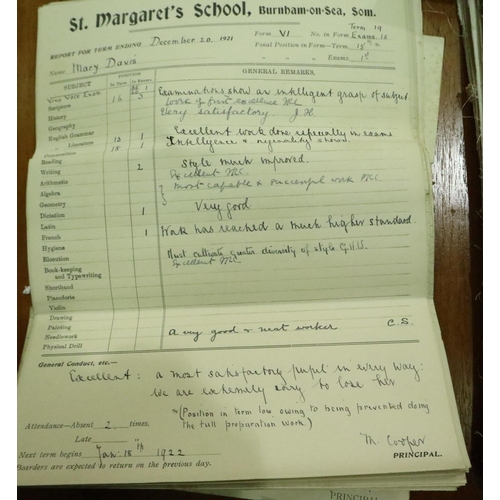 St. Margaret's School, Burnham-on-Sea, Som.
REPORT FOR TERM ENDING December 20, 1921
Form VI No. in Form Term 19 Exams. 16
Final Position in Form—Term 15th
Name Macy Davis
" " " Exams. 1st
SUBJECT POSITION In Term In Exams. GENERAL REMARKS.
Viva Voce Exam 1
Scripture 16 3 Examinations show an intelligent grasp of subject.
History Work of first excellence
Geography Very satisfactory J.H.
English Grammar 13 1 Excellent work done especially in exams
" Literature 15 1 Intelligence & originality shown.
Composition
Reading
Writing 2 Style much improved.
Arithmetic Excellent
Algebra most capable & successful work
Geometry
Dictation 1 Very good
Latin
French 1 Work has reached a much higher standard.
Hygiene
Elocution Must cultivate greater diversity of style G.H.W.
Book-keeping and Typewriting Excellent
Shorthand
Pianoforte
Violin
Drawing
Painting
Needlework A very good & neat worker C.S.
Physical Drill
General Conduct, etc.—
Excellent: a most satisfactory pupil in every way:
We are extremely sorry to lose her
(Position in term low owing to being prevented doing
the full preparation work)
Attendance—Absent 2 times.
Late
M. Cooper
Next term begins Jan. 18th 1922 PRINCIPAL.
Boarders are expected to return on the previous day.
PRINCIPAL